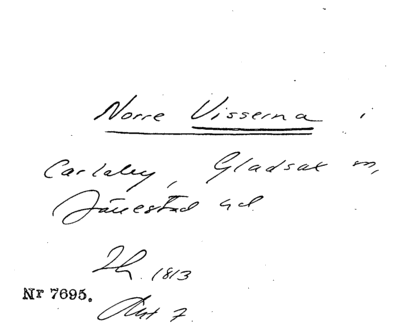 Norre Visserna i
Carlaby, Gladsax m,
Jänestad
1813
Nr 7695.
7